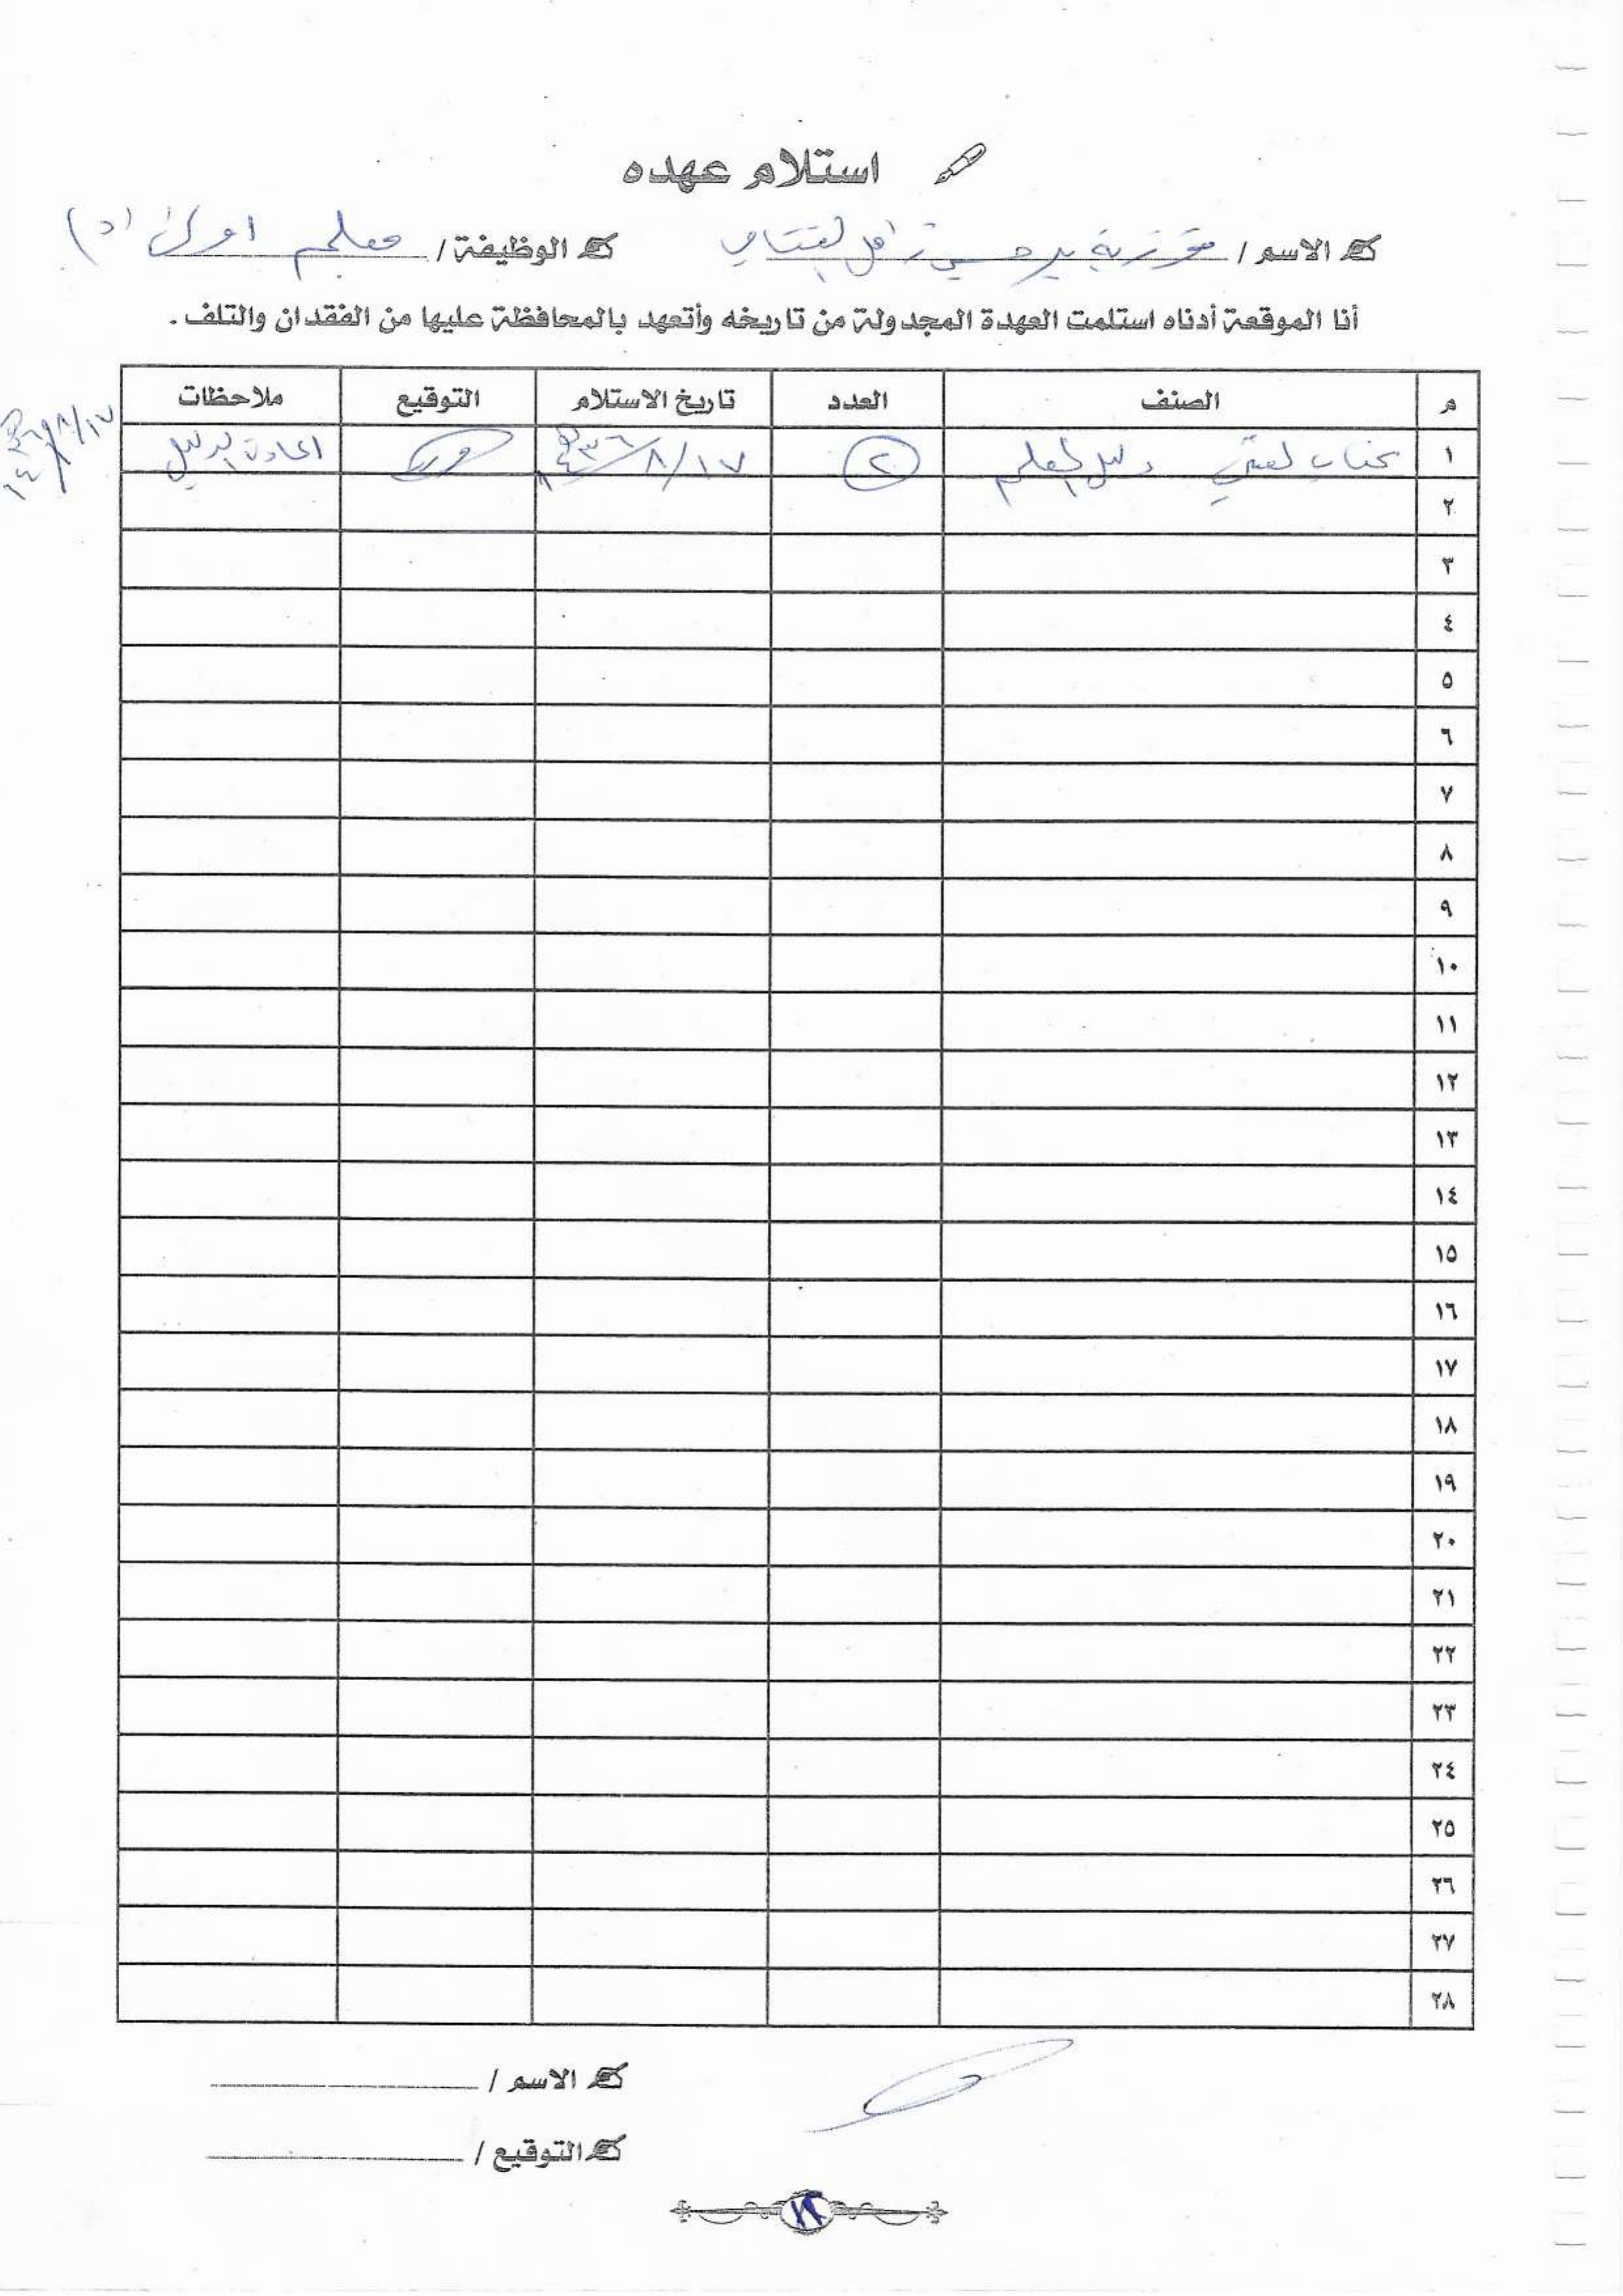 استلام عهده
الاسم / فوزية
الوظيفة / معلم اول (د)
أنا الموقعة أدناه استلمت العهدة المجدولة من تاريخه وأتعهد بالمحافظة عليها من الفقدان والتلف .
م الصنف العدد تاريخ الاستلام التوقيع ملاحظات
١ كتاب دليل المعلم ٢ ١٧/٨/١٤٣٦هـ
١٧/٨/١٤٣٦هـ
٢
٣
٤
٥
٦
٧
٨
٩
١٠
١١
١٢
١٣
١٤
١٥
١٦
١٧
١٨
١٩
٢٠
٢١
٢٢
٢٣
٢٤
٢٥
٢٦
٢٧
٢٨
الاسم /
التوقيع /